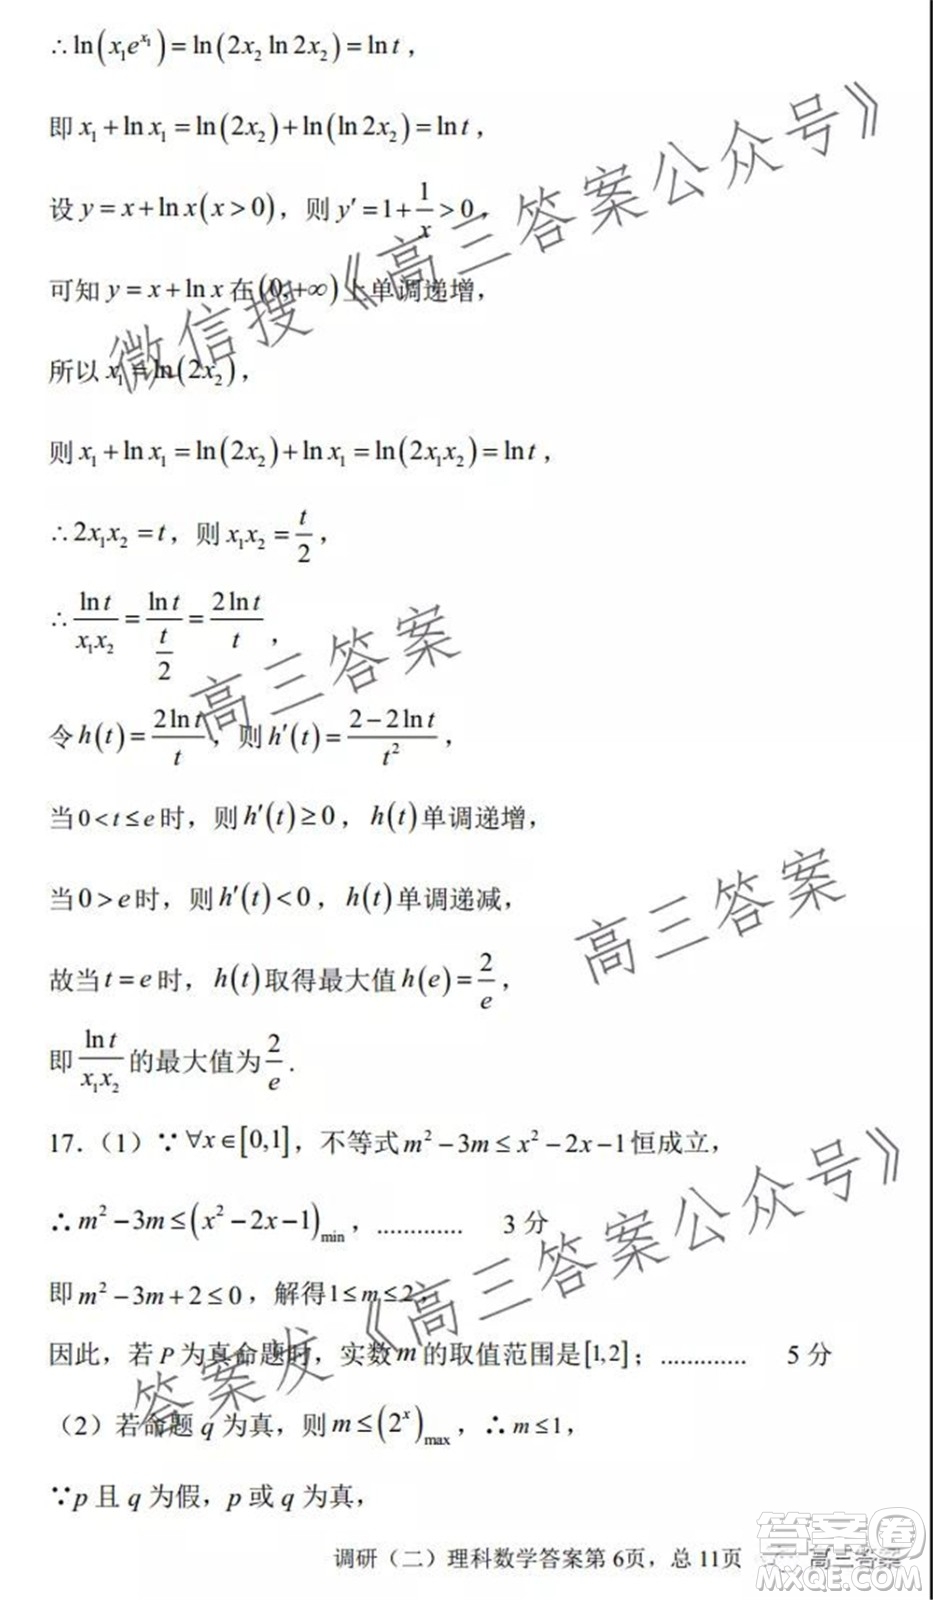 ∴ln(x₁e^{x₁})=ln(2x₂ ln 2x₂)=ln t，
即 x₁+ln x₁=ln(2x₂)+ln(ln 2x₂)=ln t，
设 y=x+ln x(x>0)，则 y′=1+1/x>0，
可知 y=x+ln x 在(0,+∞)上单调递增，
所以 x₁=ln(2x₂)，
则 x₁+ln x₁=ln(2x₂)+ln x₁=ln(2x₁x₂)=ln t，
∴2x₁x₂=t，则 x₁x₂=t/2，
∴ln t/(x₁x₂)=ln t/(t/2)=2ln t/t，
令 h(t)=2ln t/t，则 h′(t)=(2-2ln t)/t²，
当 0<t≤e 时，则 h′(t)≥0，h(t)单调递增，
当 0>e 时，则 h′(t)<0，h(t)单调递减，
故当 t=e 时，h(t)取得最大值 h(e)=2/e，
即 ln t/(x₁x₂) 的最大值为 2/e.
17.（1）∵∀x∈[0,1]，不等式 m²-3m≤x²-2x-1恒成立，
∴m²-3m≤(x²-2x-1)min，............. 3 分
即 m²-3m+2≤0，解得1≤m≤2，
因此，若 P 为真命题时，实数 m 的取值范围是[1,2]；............. 5 分
（2）若命题 q 为真，则 m≤(2^x)max，∴m≤1，
∵p 且 q 为假，p 或 q 为真，
调研（二）理科数学答案第 6页，总 11页
高三答案
微信搜《高三答案公众号》
高三答案
高三答案
答案发《高三答案公众号》
答案圈
MXQE.COM